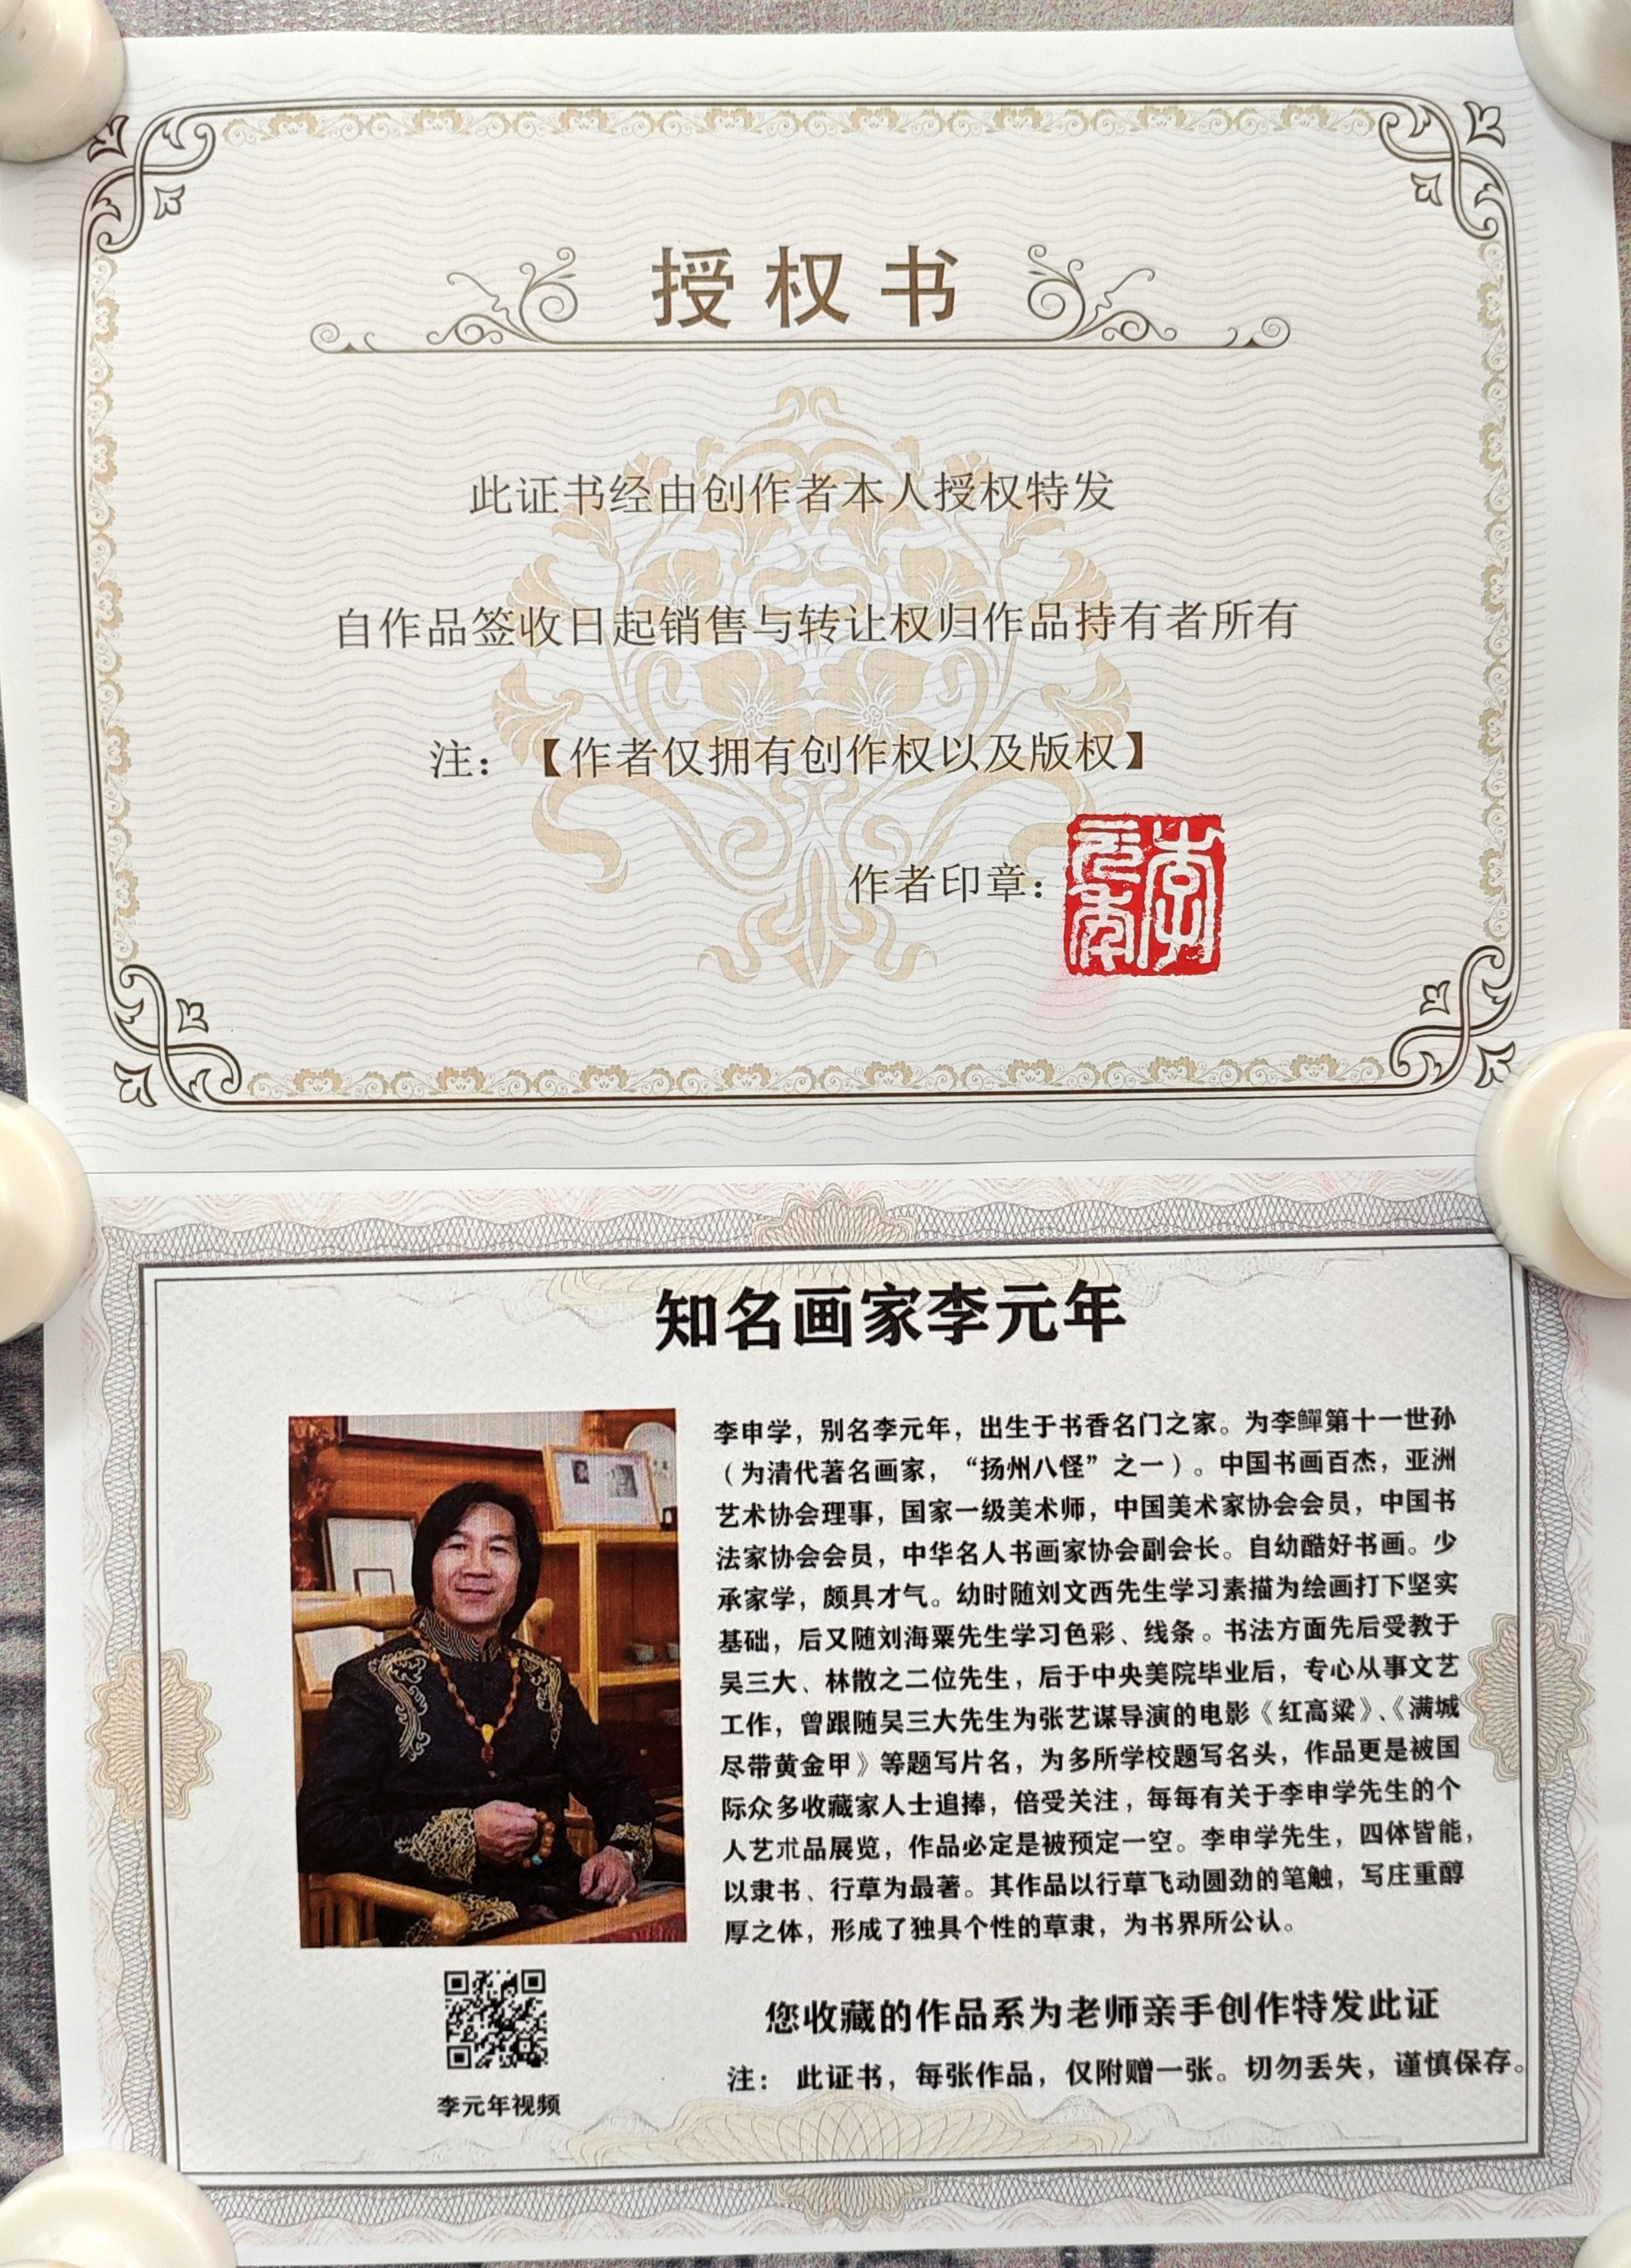 授权书
此证书经由创作者本人授权特发
自作品签收日起销售与转让权归作品持有者所有
注：【作者仅拥有创作权以及版权】
作者印章：
李元年
知名画家李元年
李申学，别名李元年，出生于书香名门之家。为李鱓第十一世孙
（为清代著名画家，“扬州八怪”之一）。中国书画百杰，亚洲
艺术协会理事，国家一级美术师，中国美术家协会会员，中国书
法家协会会员，中华名人书画家协会副会长。自幼酷好书画。少
承家学，颇具才气。幼时随刘文西先生学习素描为绘画打下坚实
基础，后又随刘海粟先生学习色彩、线条。书法方面先后受教于
吴三大、林散之二位先生，后于中央美院毕业后，专心从事文艺
工作，曾跟随吴三大先生为张艺谋导演的电影《红高粱》、《满城
尽带黄金甲》等题写片名，为多所学校题写名头，作品更是被国
际众多收藏家人士追捧，倍受关注，每每有关于李申学先生的个
人艺术品展览，作品必定是被预定一空。李申学先生，四体皆能，
以隶书、行草为最著。其作品以行草飞动圆劲的笔触，写庄重醇
厚之体，形成了独具个性的草隶，为书界所公认。
李元年视频
您收藏的作品系为老师亲手创作特发此证
注： 此证书，每张作品，仅附赠一张。切勿丢失，谨慎保存。